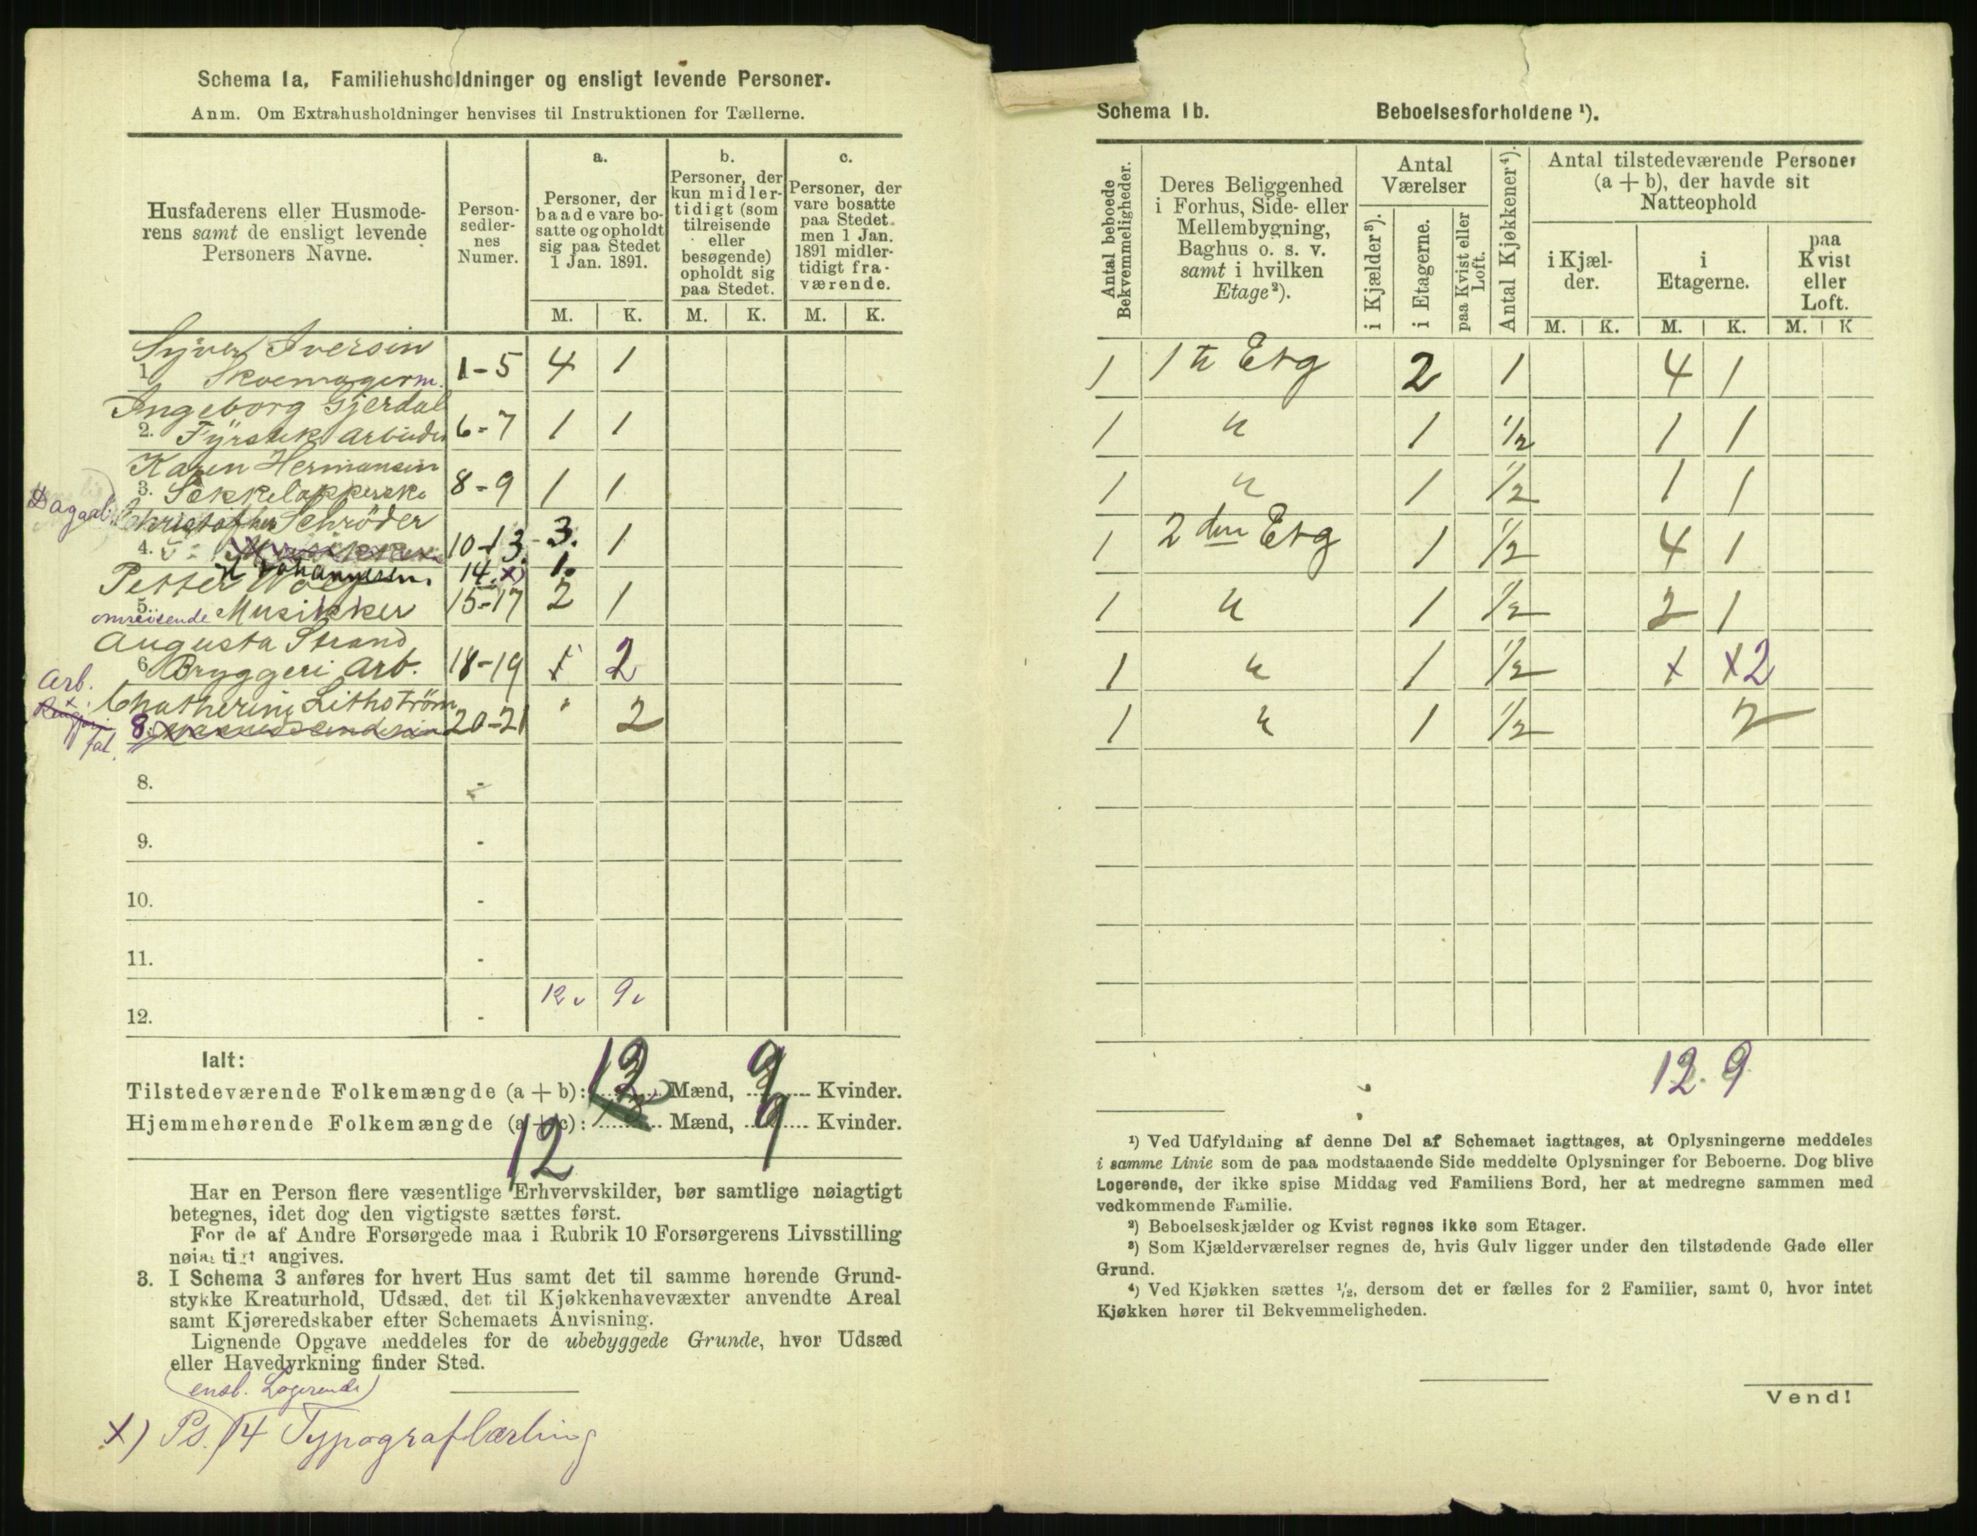 Schema 1a, Familiehusholdninger og ensligt levende Personer.
Anm. Om Extrahusholdninger henvises til Instruktionen for Tællerne.
Husfaderens eller Husmode-
rens samt de ensligt levende
Personers Navne.
Person-
sedler-
nes
Numer.
a.
Personer, der
baade vare bo-
satte og opholdt
sig paa Stedet
1 Jan. 1891.
b.
Personer, der
kun midler-
tidigt (som
tilreisende
eller
besøgende)
opholdt sig
paa Stedet.
c.
Personer, der
vare bosatte
paa Stedet
men 1 Jan.
1891 midler-
tidigt fra-
værende.
M. K. M. K. M. K.
Syver Iversen
1. Skoemagerm. 1-5 4 1
Ingeborg Gjerdal
2. Fyrstik Arbeider 6-7 1 1
Karen Hermansen
3. Sækkelapperske 8-9 1 1
Dagarb. Christopher Schrøder
4. 10-13 3. 1
Johannessen. 14. x) 1.
Petter
5. omreisende Musikker 15-17 2 1
Augusta Strand
6. Bryggeri Arb. 18-19 1 2
Arb.
Chatherine Lithström
8. 20-21 " 2
8. -
9. -
10. -
11. -
12. - 12 9
Ialt:
Tilstedeværende Folkemængde (a + b): 12 Mænd, 9 Kvinder.
Hjemmehørende Folkemængde (a + c): 12 Mænd, 9 Kvinder.
Har en Person flere væsentlige Erhvervskilder, bør samtlige nøiagtigt
betegnes, idet dog den vigtigste sættes først.
For de af Andre Forsørgede maa i Rubrik 10 Forsørgerens Livsstilling
nøiagtigt angives.
3. I Schema 3 anføres for hvert Hus samt det til samme hørende Grund-
stykke Kreaturhold, Udsæd, det til Kjøkkenhavevæxter anvendte Areal
samt Kjøreredskaber efter Schemaets Anvisning.
Lignende Opgave meddeles for de ubebyggede Grunde, hvor Udsæd
eller Havedyrkning finder Sted.
(ensl. Logerende)
x) Ps. 14 Typograflærling
Schema 1b. Beboelsesforholdene ¹).
Antal beboede
Bekvemmeligheder.
Deres Beliggenhed
i Forhus, Side- eller
Mellembygning,
Baghus o. s. v.
samt i hvilken
Etage²).
Antal
Værelser
i Kjælder³).
i Etagerne.
paa Kvist eller
Loft.
Antal Kjøkkener⁴).
Antal tilstedeværende Personer
(a + b), der havde sit
Natteophold
i Kjæl-
der.
i
Etagerne.
paa
Kvist
eller
Loft.
M. K. M. K. M. K
1 1te Etg 2 1 4 1
1 " 1 ½ 1 1
1 " 1 ½ 1 1
1 2den Etg 1 ½ 4 1
1 " 1 ½ 2 1
1 " 1 ½ x x2
1 " 1 ½ 2
12. 9
¹) Ved Udfyldning af denne Del af Schemaet iagttages, at Oplysningerne meddeles
i samme Linie som de paa modstaaende Side meddelte Oplysninger for Beboerne. Dog blive
Logerende, der ikke spise Middag ved Familiens Bord, her at medregne sammen med
vedkommende Familie.
²) Beboelseskjælder og Kvist regnes ikke som Etager.
³) Som Kjælderværelser regnes de, hvis Gulv ligger under den tilstødende Gade eller
Grund.
⁴) Ved Kjøkken sættes ½, dersom det er fælles for 2 Familier, samt 0, hvor intet
Kjøkken hører til Bekvemmeligheden.
Vend!